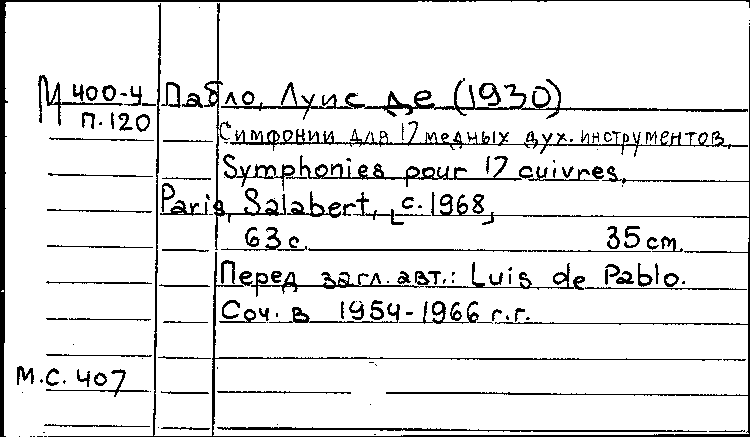 М 400-4 Пабло, Луис де (1930)
П.120
Симфонии для 17 медных дух. инструментов.
Symphonies pour 17 cuivres,
Paris, Salabert, [c. 1968]
63 с. 35 cm.
Перед загл. авт.: Luis de Pablo.
Соч. в 1954-1966 г.г.
М.С. 407